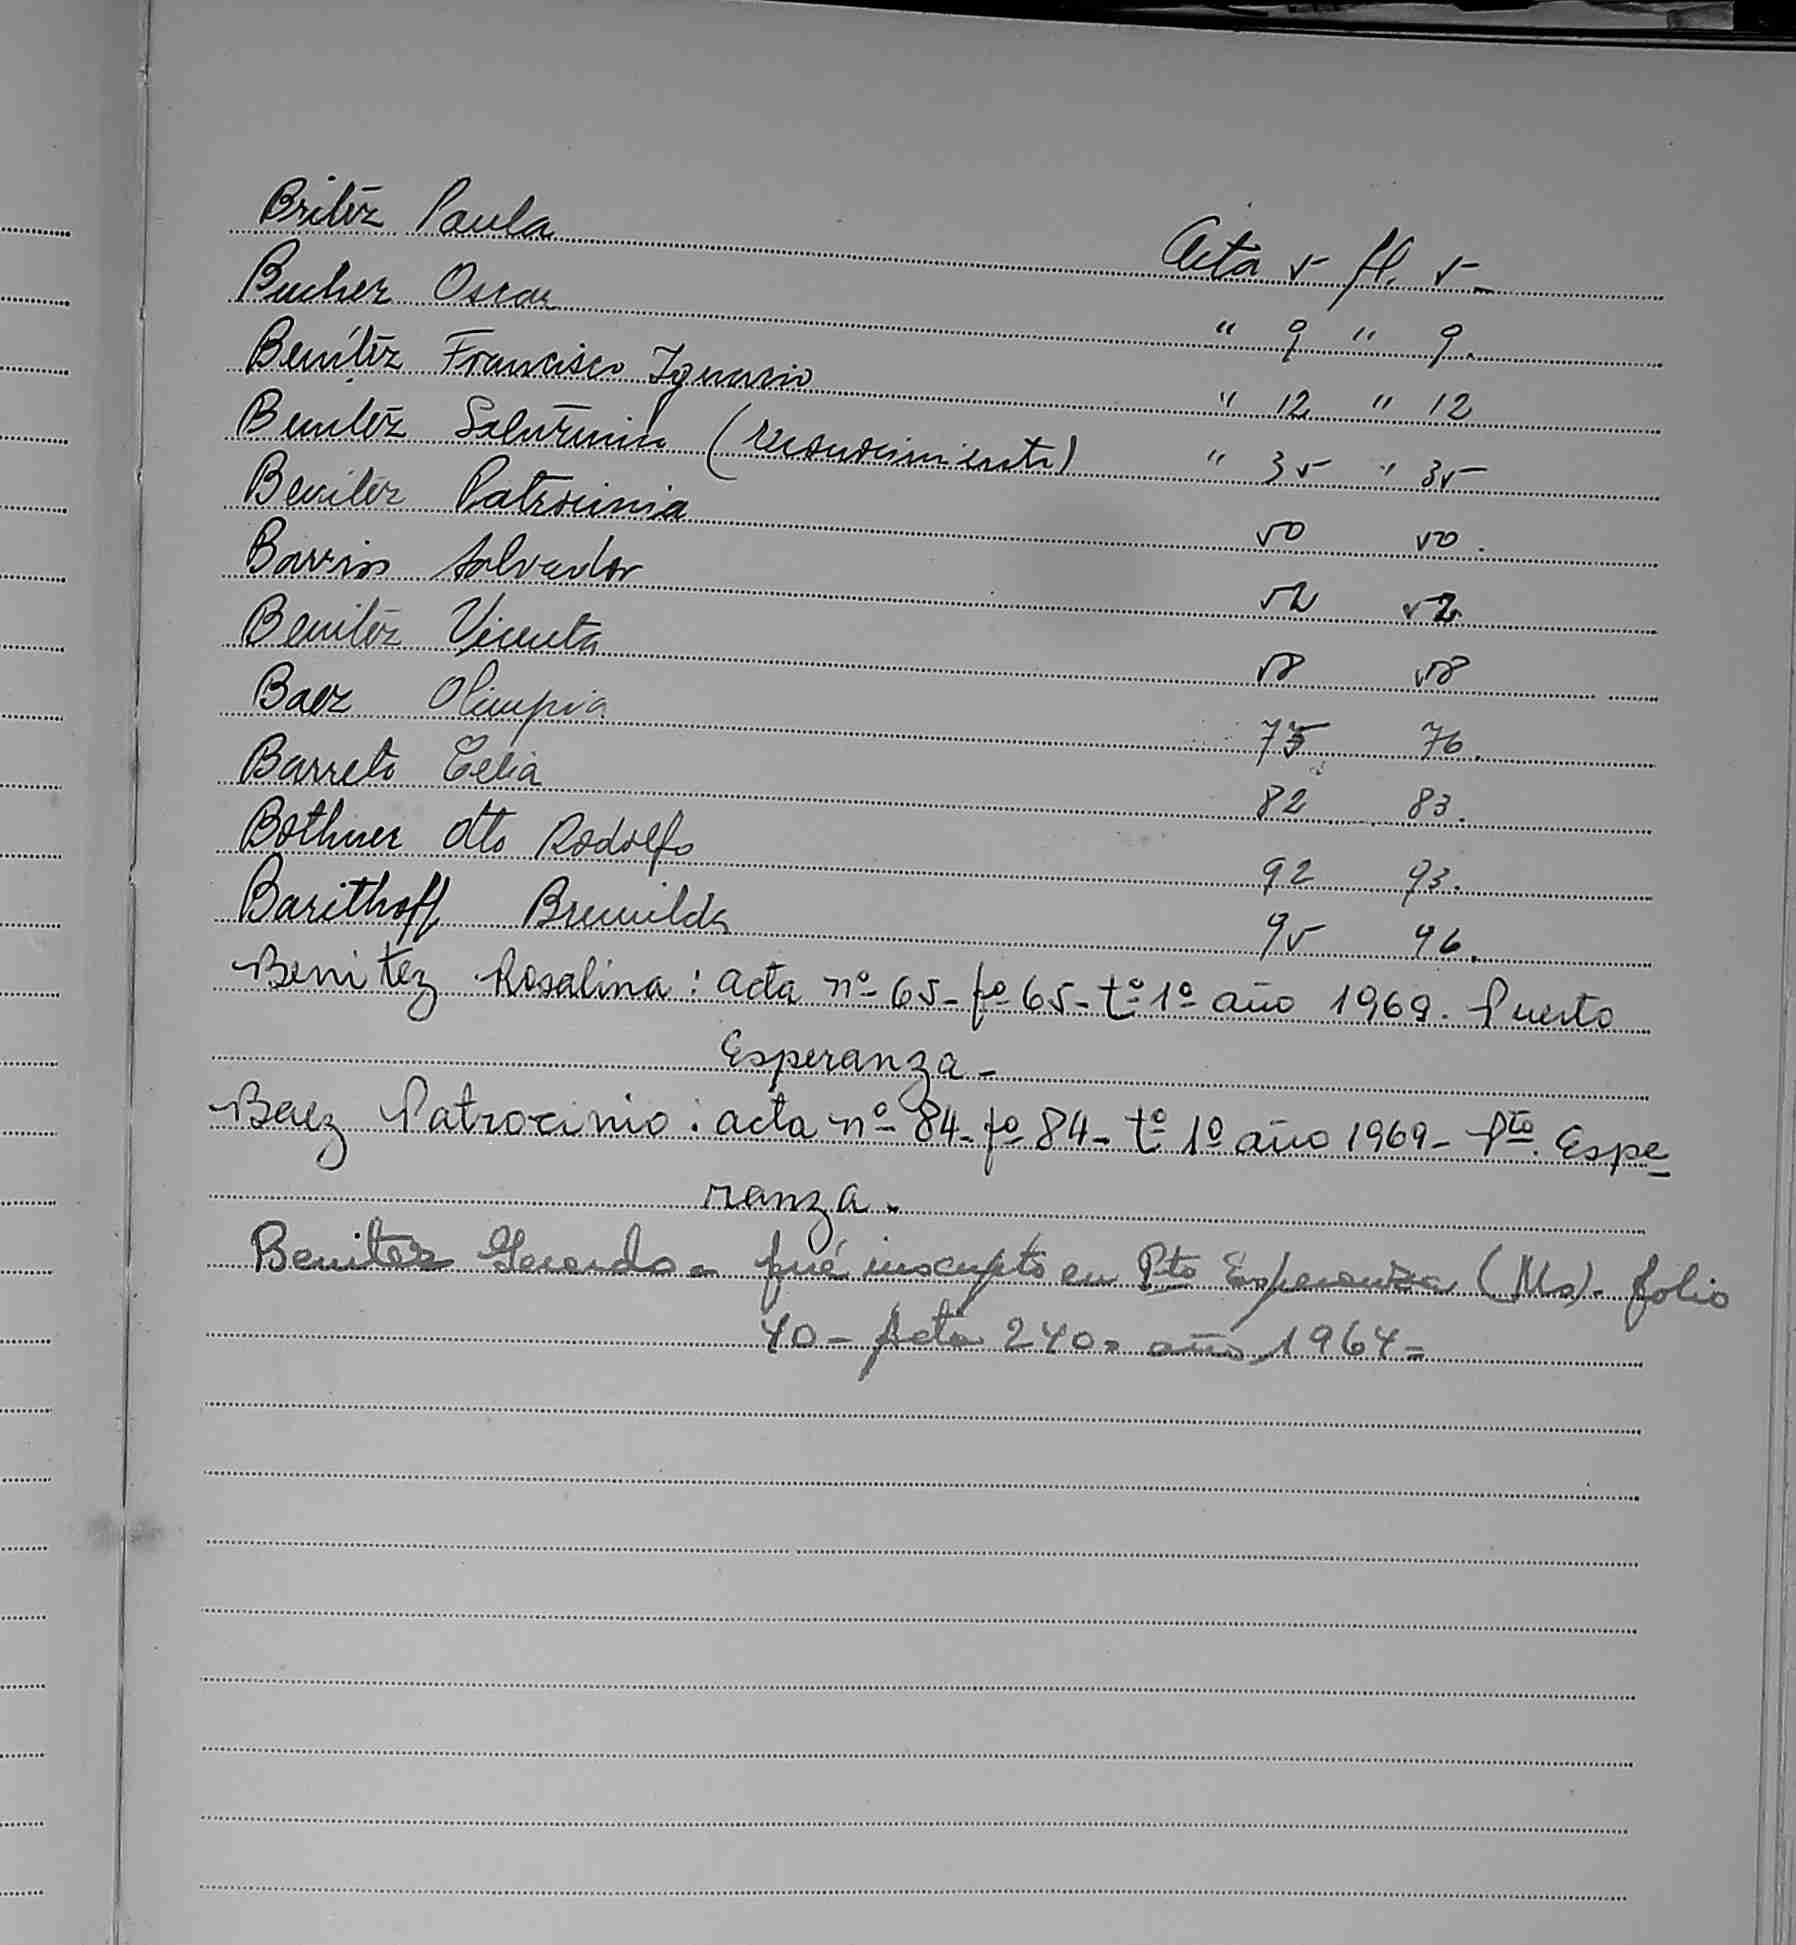 Britéz Paula Acta 5 fl. 5-
Bucher Oscar " 9 " 9.
Benítéz Francisco Ignacio " 12 " 12
Benitéz Saturnina (reconocimiento) " 35 " 35
Benitéz Patrocinia 50 50.
Barrios Salvador 52 52
Benitéz Vicenta 58 58
Baez Olimpia 75 76.
Barreto Celia 82 83.
Bothner Otto Rodolfo 92 93.
Barithoff Brunilda 95 96.
Benitez Rosalina: acta nº 65- fº 65- tº 1º año 1969. Puerto
Esperanza-
Baez Patrocinio: acta nº 84- fº 84- tº 1º año 1969- Pto. Espe-
ranza.
Benitez Gerardo - fué inscripto en Pto Esperanza (Ms). folio
40- Acta 240- año 1964-